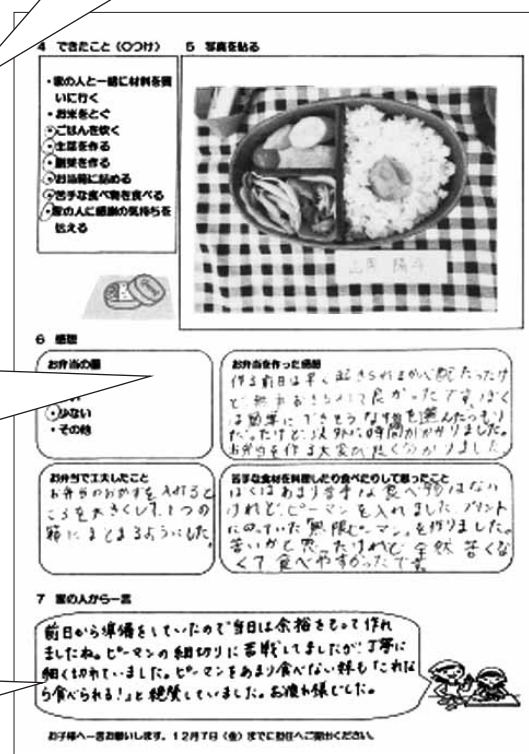 4 できたこと（○つけ）
5 写真を貼る
・家の人と一緒に材料を買
いに行く
・お米をとぐ
・ごはんを炊く
・主菜を作る
・副菜を作る
・お弁当箱に詰める
・苦手な食べ物を食べる
・家の人に感謝の気持ちを
伝える
6 感想
お弁当の量
・少ない
・その他
お弁当を作った感想
作る前日は早く起きられるか心配だったけ
ど無事おきられて良かったです。ぼく
は簡単にできそうな物を選んだつもり
だったけど、以外に時間がかかりました。
お弁当を作る大変さがよく分かりました
お弁当で工夫したこと
お弁当のおかずを入れると
ころを大きくして、1つの
箱にまとまるようにした。
苦手な食材を料理したり食べたりして思ったこと
ぼくはあまり苦手な食べ物はない
けれど、ピーマンを入れました。プリント
にのっていた「無限ピーマン」を作りました。
苦いかと思ったけれど、全然苦くな
くて食べやすかったです。
7 家の人から一言
前日から準備をしていたので当日は余裕をもって作れ
ましたね。ピーマンの細切りに苦戦してましたが、丁寧に
細く切れていました。ピーマンをあまり食べない妹も「これな
ら食べられる！」と絶賛していました。お疲れ様でした。
お子様へ一言お願いします。12月7日（金）までに担任へご提出ください。